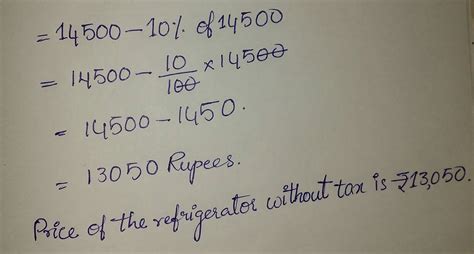 = 14500 – 10% of 14500
= 14500 – 10/100 × 14500
= 14500 – 1450.
= 13050 Rupees.
Price of the refrigerator without tax is ₹13,050.